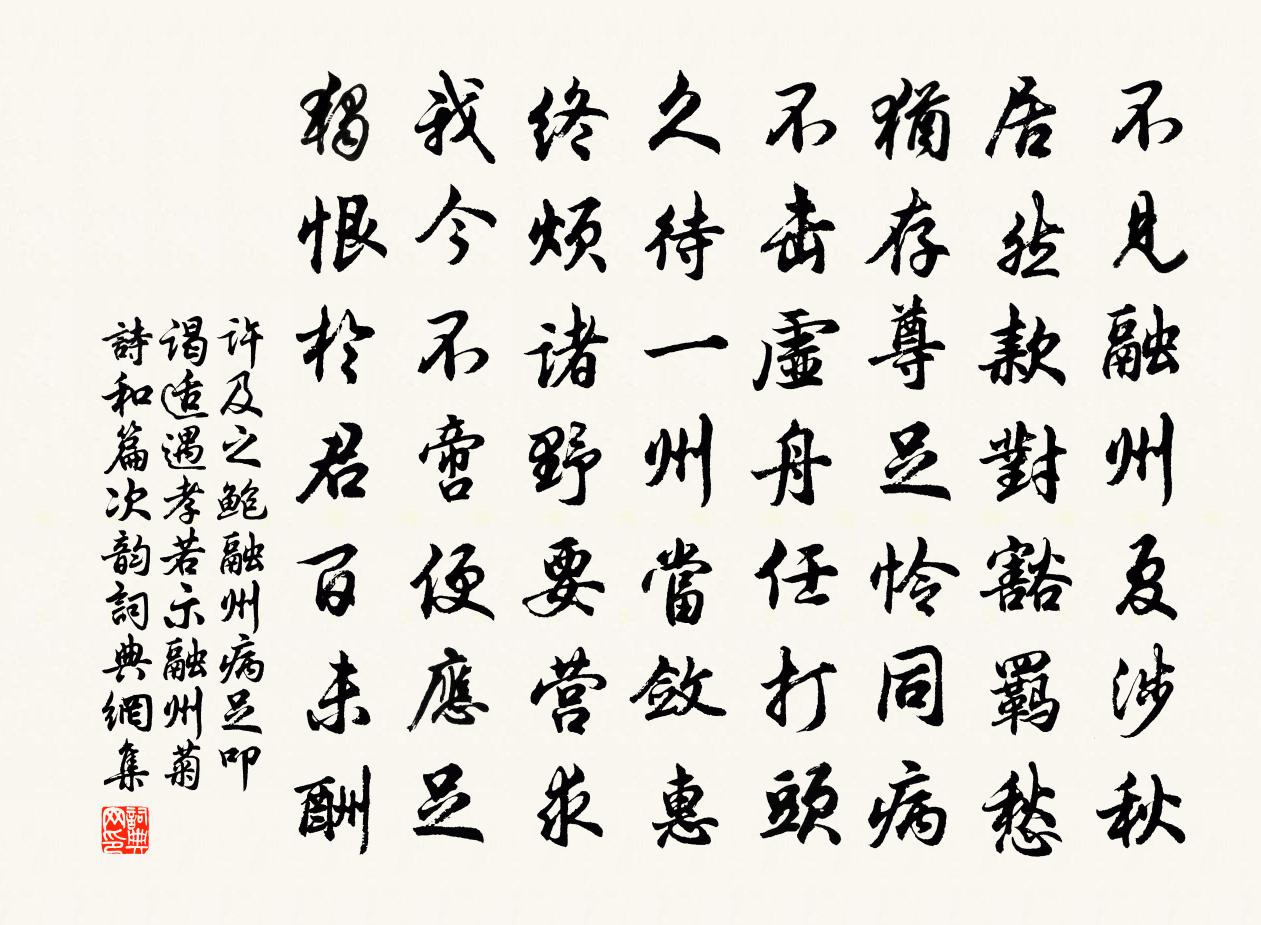 不見融州夏涉秋
居然款對豁羈愁
猶存尊足憐同病
不击虛舟任打頭
久待一州當斂惠
終煩諸野要营求
我今不啻便應足
獨恨於君百未酬
許及之鲍融州病足叩
谒适遇孝若示融州菊
詩和篇次韵詞典網集
詞典网印